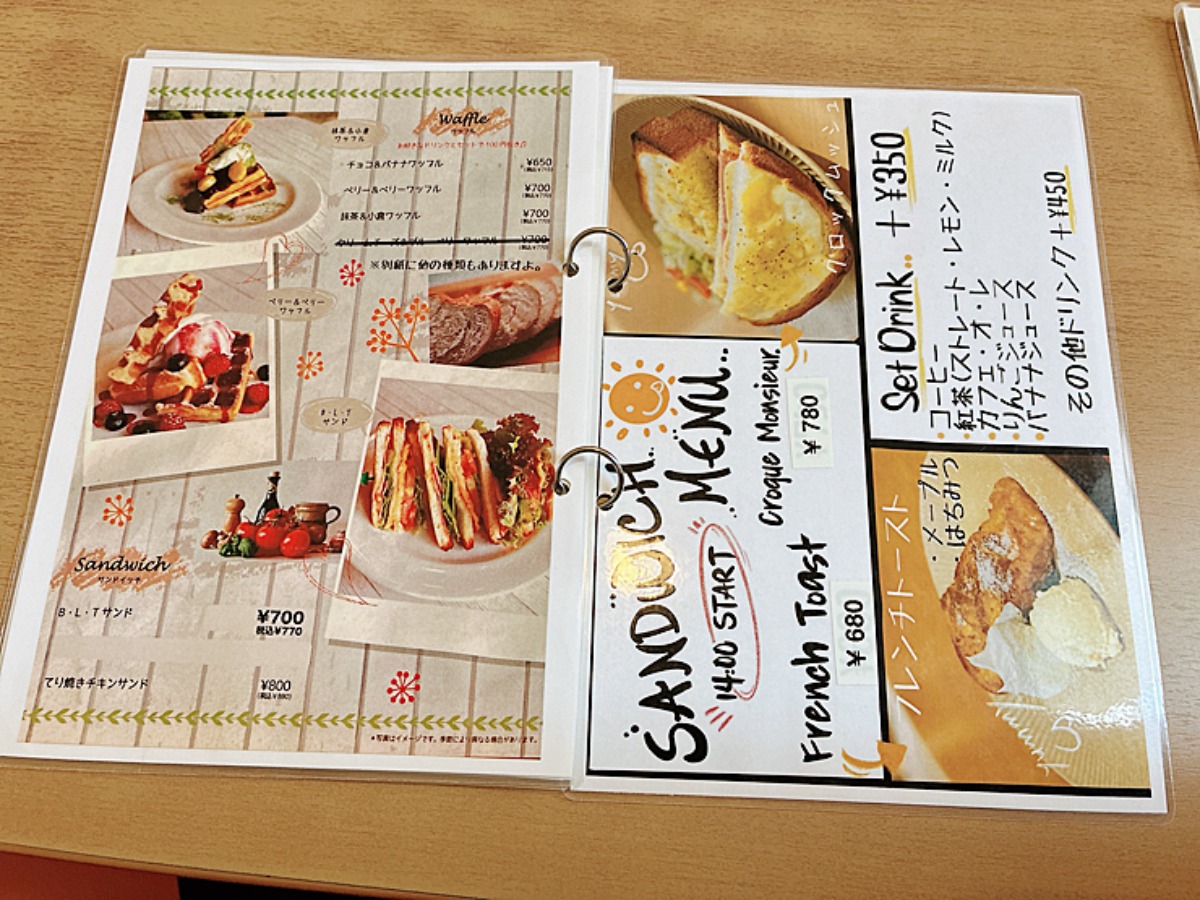 Waffle
ワッフル
抹茶&小倉
ワッフル
チョコ&バナナワッフル ¥650
ベリー&ベリーワッフル ¥700
抹茶&小倉ワッフル ¥700
(税込¥770)
¥700
※別紙に他の種類もありますよ。
ベリー&ベリー
ワッフル
B・L・T
サンド
Sandwich
サンドイッチ
B・L・Tサンド ¥700
税込¥770
てり焼きチキンサンド ¥800
(税込¥880)
*写真はイメージです。季節により異なる場合があります。
クロックムッシュ
SANDWICH
MENU
14:00 START
Croque Monsieur
¥780
French Toast
¥680
Set Drink +¥350
・コーヒー
・紅茶(ストレート・レモン・ミルク)
・カフェ・オ・レ
・りんごジュース
・バナナジュース
その他ドリンク+¥450
フレンチトースト
・メープル
・はちみつ